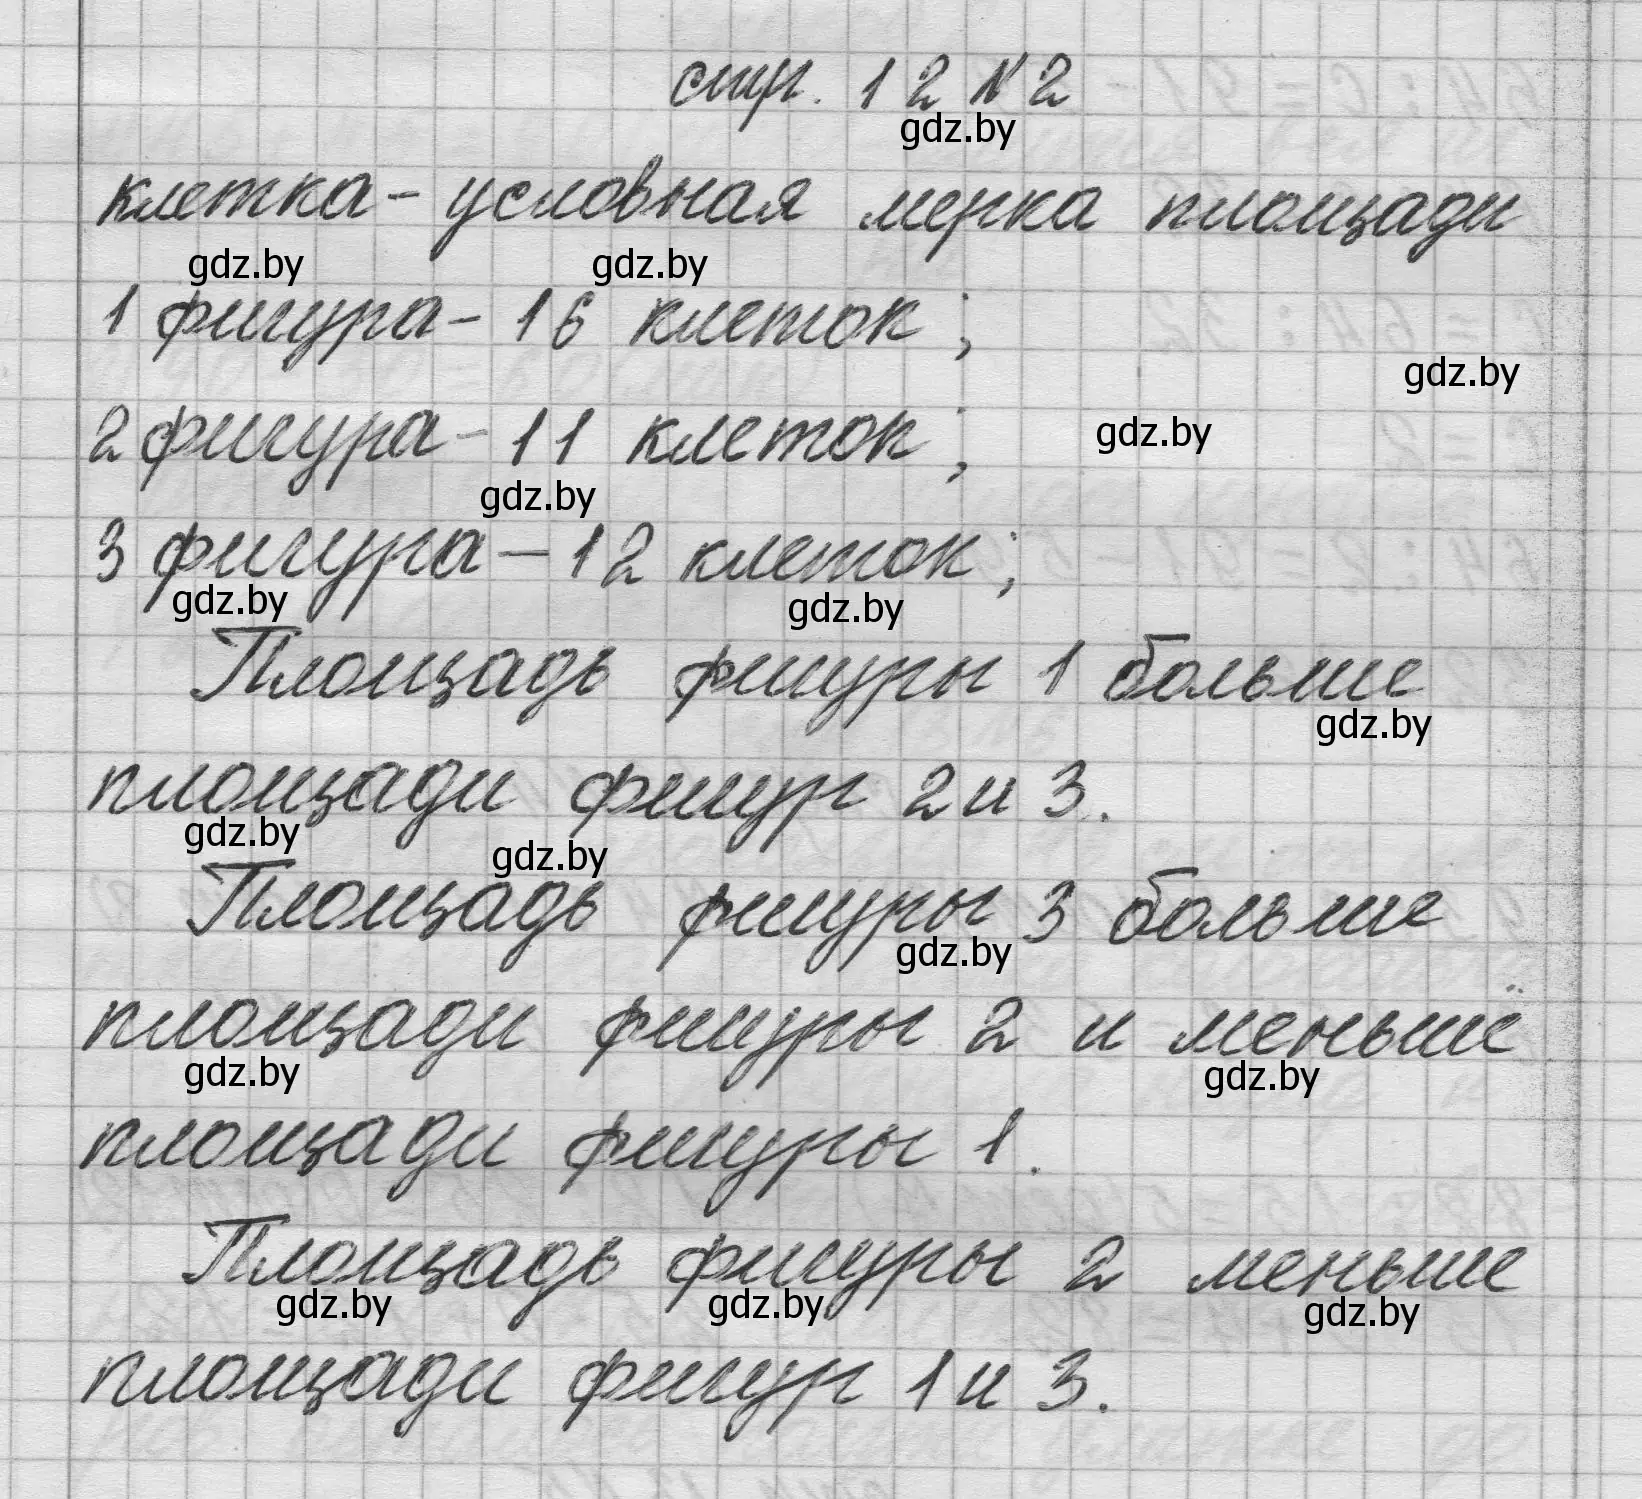 стр. 12 №2
gdz.by
клетка - условная мерка площади
gdz.by gdz.by
1 фигура - 16 клеток;
gdz.by
2 фигура - 11 клеток;
gdz.by
gdz.by
3 фигура - 12 клеток;
gdz.by gdz.by
Площадь фигуры 1 больше
gdz.by
площади фигур 2 и 3.
gdz.by gdz.by
Площадь фигуры 3 больше
gdz.by
площади фигуры 2 и меньше
gdz.by gdz.by
площади фигуры 1.
Площадь фигуры 2 меньше
gdz.by gdz.by gdz.by
площади фигур 1 и 3.